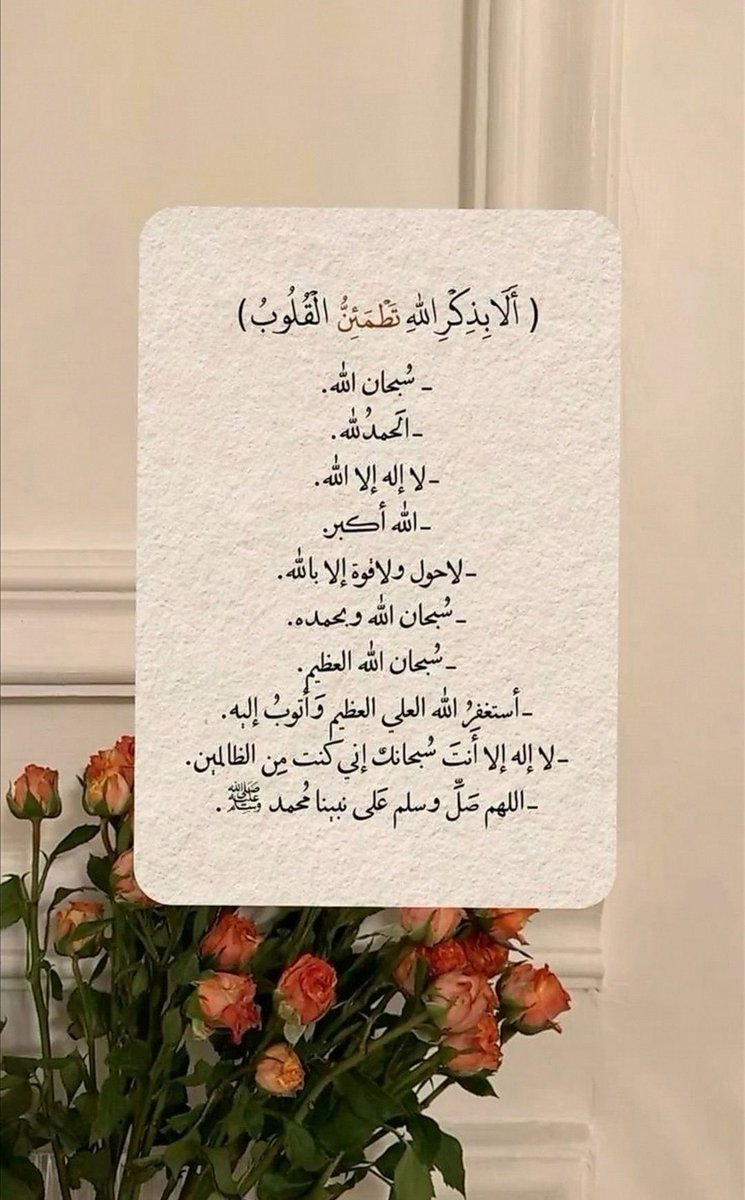 ( أَلَا بِذِكْرِ اللهِ تَطْمَئِنُّ الْقُلُوبُ )
- سُبحان الله.
- الَحمدُلله.
- لا إله إلا الله.
- الله أكبر.
- لاحول ولاقوة إلا بالله.
- سُبحان الله وبحمده.
- سُبحان الله العظيم.
- أستغفرُ الله العلي العظيم وَأتوبُ إليه.
- لا إله إلا أَنتَ سُبحانك إني كنت مِن الظالمين.
- اللهم صَلِّ وسلم عَلى نبينا مُحمد ﷺ.